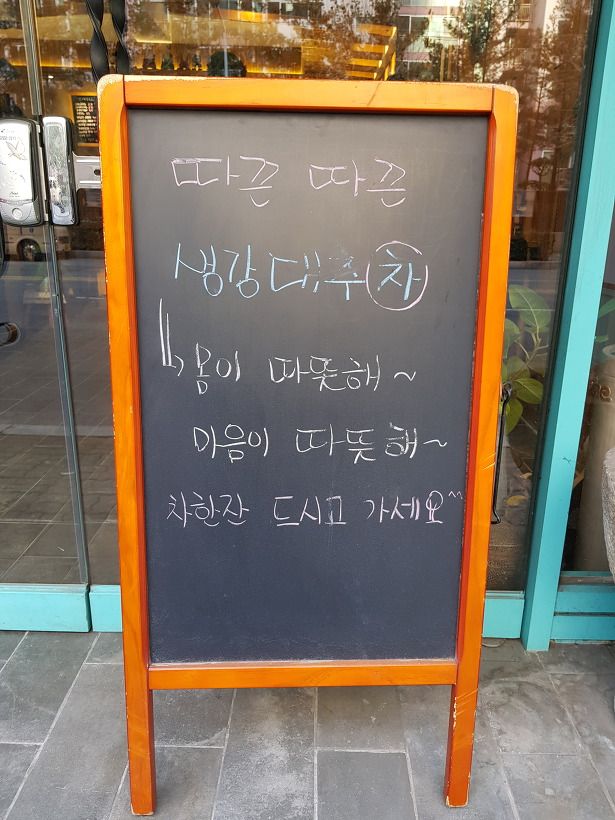 따끈 따끈
생강대추차
몸이 따뜻해~
마음이 따뜻해~
차한잔 드시고 가세요^^